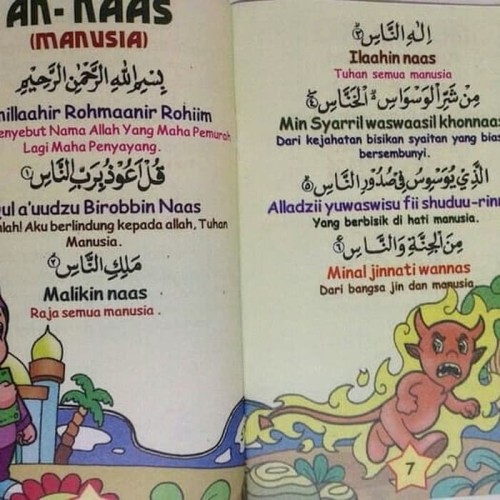 AN-NAAS
(MANUSIA)
بِسْمِ اللهِ الرَّحْمٰنِ الرَّحِيْمِ
millaahir Rohmaanir Rohiim
enyebut Nama Allah Yang Maha Pemurah
Lagi Maha Penyayang.
قُلْ اَعُوْذُ بِرَبِّ النَّاسِ ١
ul a'uudzu Birobbin Naas
lah! Aku berlindung kepada allah, Tuhan
Manusia.
مَلِكِ النَّاسِ ٢
Malikin naas
Raja semua manusia .
اِلٰهِ النَّاسِ ٣
Ilaahin naas
Tuhan semua manusia
مِنْ شَرِّ الْوَسْوَاسِ الْخَنَّاسِ ٤
Min Syarril waswaasil khonnaas
Dari kejahatan bisikan syaitan yang bias
bersembunyi.
الَّذِيْ يُوَسْوِسُ فِيْ صُدُوْرِ النَّاسِ ٥
Alladzii yuwaswisu fii shuduu-rinn
Yang berbisik di hati manusia.
مِنَ الْجِنَّةِ وَالنَّاسِ ٦
Minal jinnati wannas
Dari bangsa jin dan manusia
7